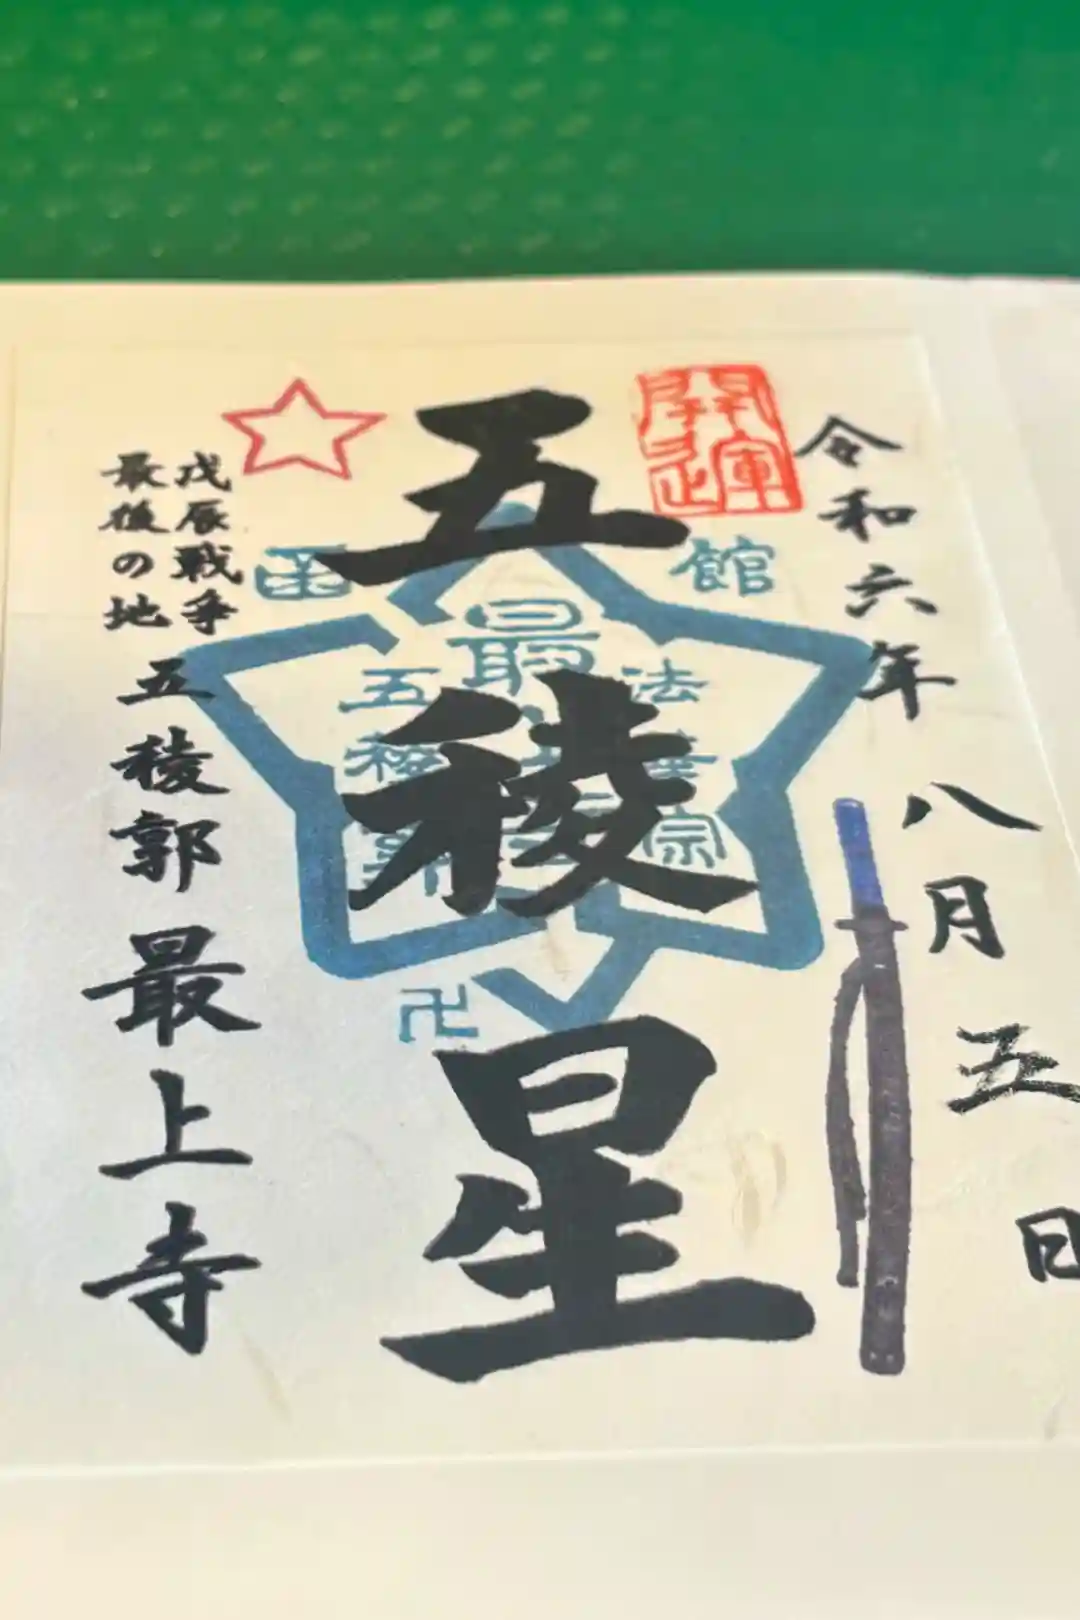 令和六年八月五日
開運
五稜星
函館
法華宗
最上寺
五稜郭
卍
戊辰戦争
最後の地
五稜郭最上寺